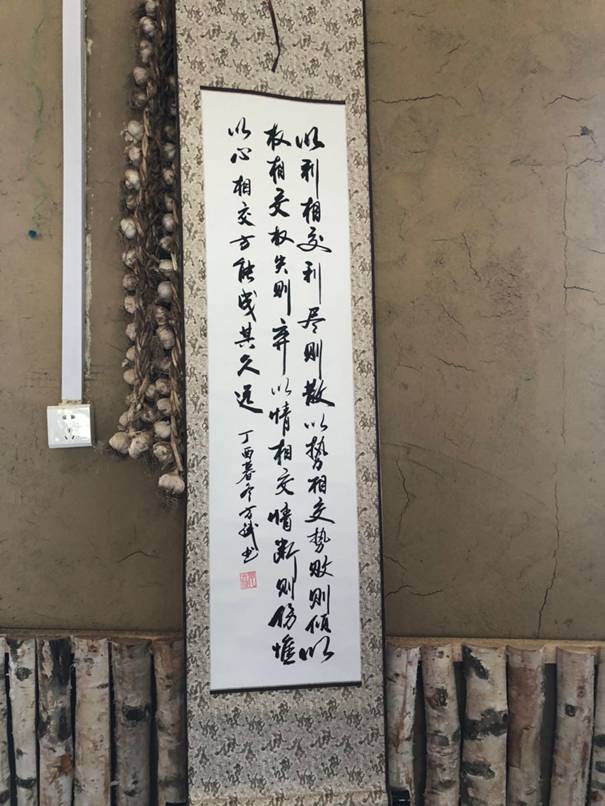 以利相交利尽则散以势相交势败则倾以
权相交权失则弃以情相交情断则伤惟
以心相交方能成其久远
丁酉暮冬万斌书